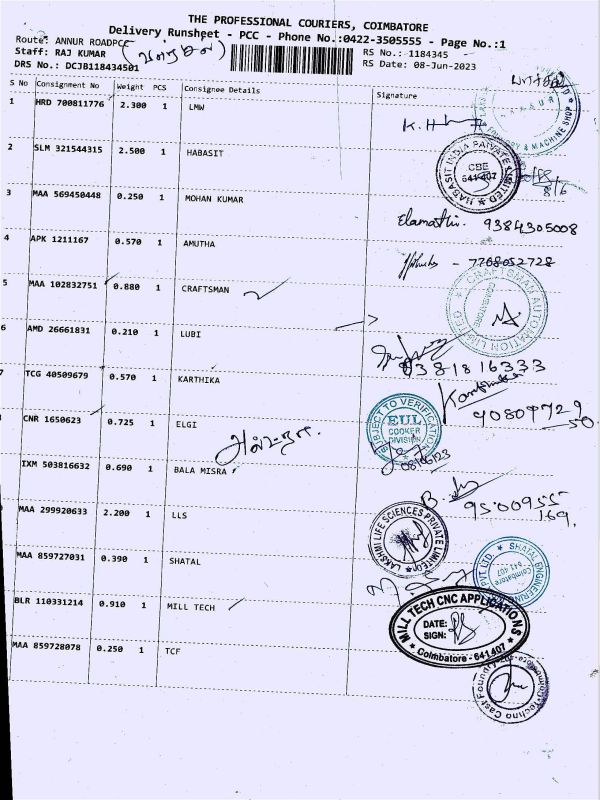 THE PROFESSIONAL COURIERS, COIMBATORE
Delivery Runsheet - PCC - Phone No.:0422-3505555 - Page No.:1
Route: ANNUR ROADPCC
RS No.: 1184345
Staff: RAJ KUMAR
RS Date: 08-Jun-2023
DRS No.: DCJB118434501
S No Consignment No Weight PCS Consignee Details Signature
1 HRD 700811776 2.300 1 LMW
FOUNDRY & MACHINE SHOP
2 SLM 321544315 2.500 1 HABASIT
HABASIT INDIA PRIVATE LIMITED
CBE
641 407
3 MAA 569450448 0.250 1 MOHAN KUMAR
Elamathi. 9384305008
4 APK 1211167 0.570 1 AMUTHA
- 7708052728
5 MAA 102832751 0.880 1 CRAFTSMAN
CRAFTSMAN AUTOMATION LIMITED
COIMBATORE
6 AMD 26661831 0.210 1 LUBI
9381816333
TCG 40509679 0.570 1 KARTHIKA
Karthika
CNR 1650623 0.725 1 ELGI
SUBJECT TO VERIFICATION
EUL
COOKER
DIVISION
08/06/23
IXM 503816632 0.690 1 BALA MISRA
9500955
169.
MAA 299920633 2.200 1 LLS
LAKSHMI LIFE SCIENCES PRIVATE LIMITED
MAA 859727031 0.390 1 SHATAL
SHATAL ENGINEERING PVT LTD.
Coimbatore
641 407
BLR 110331214 0.910 1 MILL TECH
MILL TECH CNC APPLICATIONS
DATE:
SIGN:
Coimbatore - 641 407
MAA 859728078 0.250 1 TCF
Techno Cast Foundry